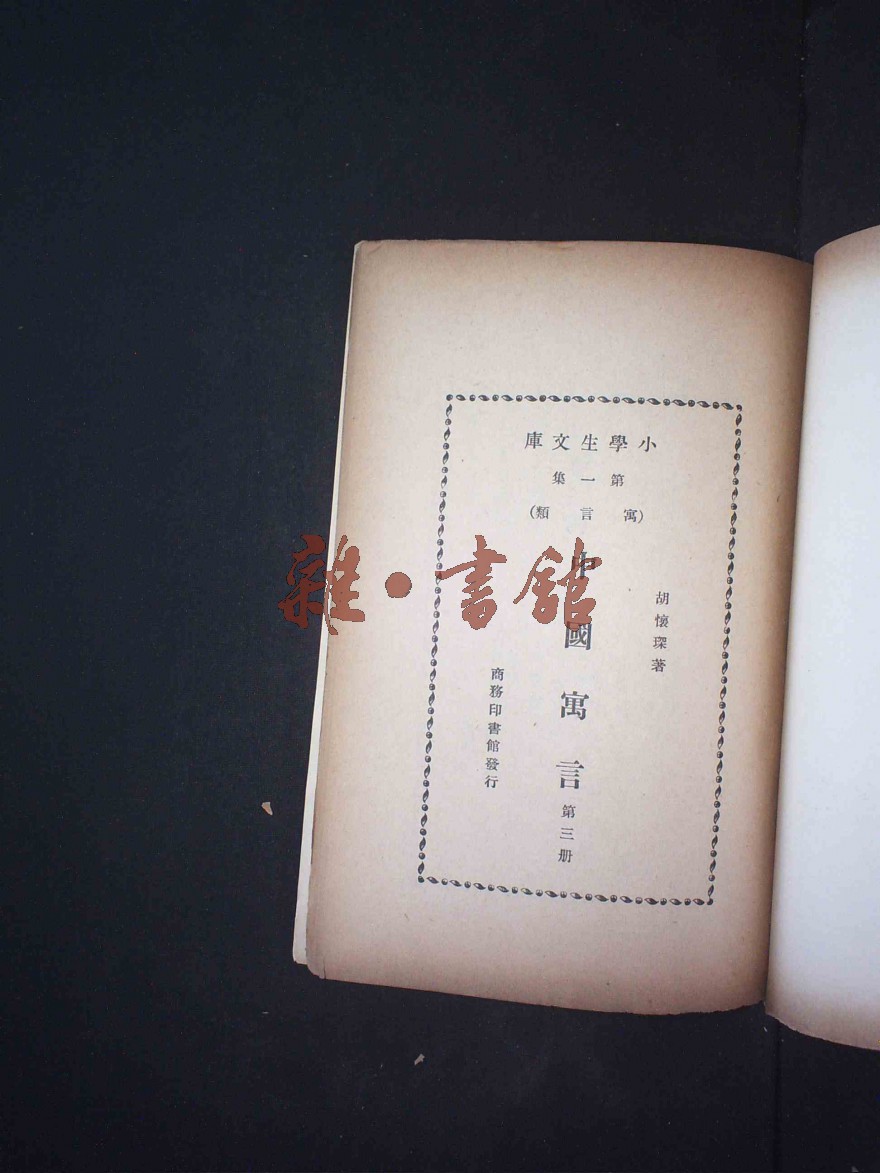 小學生文庫
第一集
(寓言類)
胡懷琛著
中國寓言第三册
商務印書館發行
雜·書舘